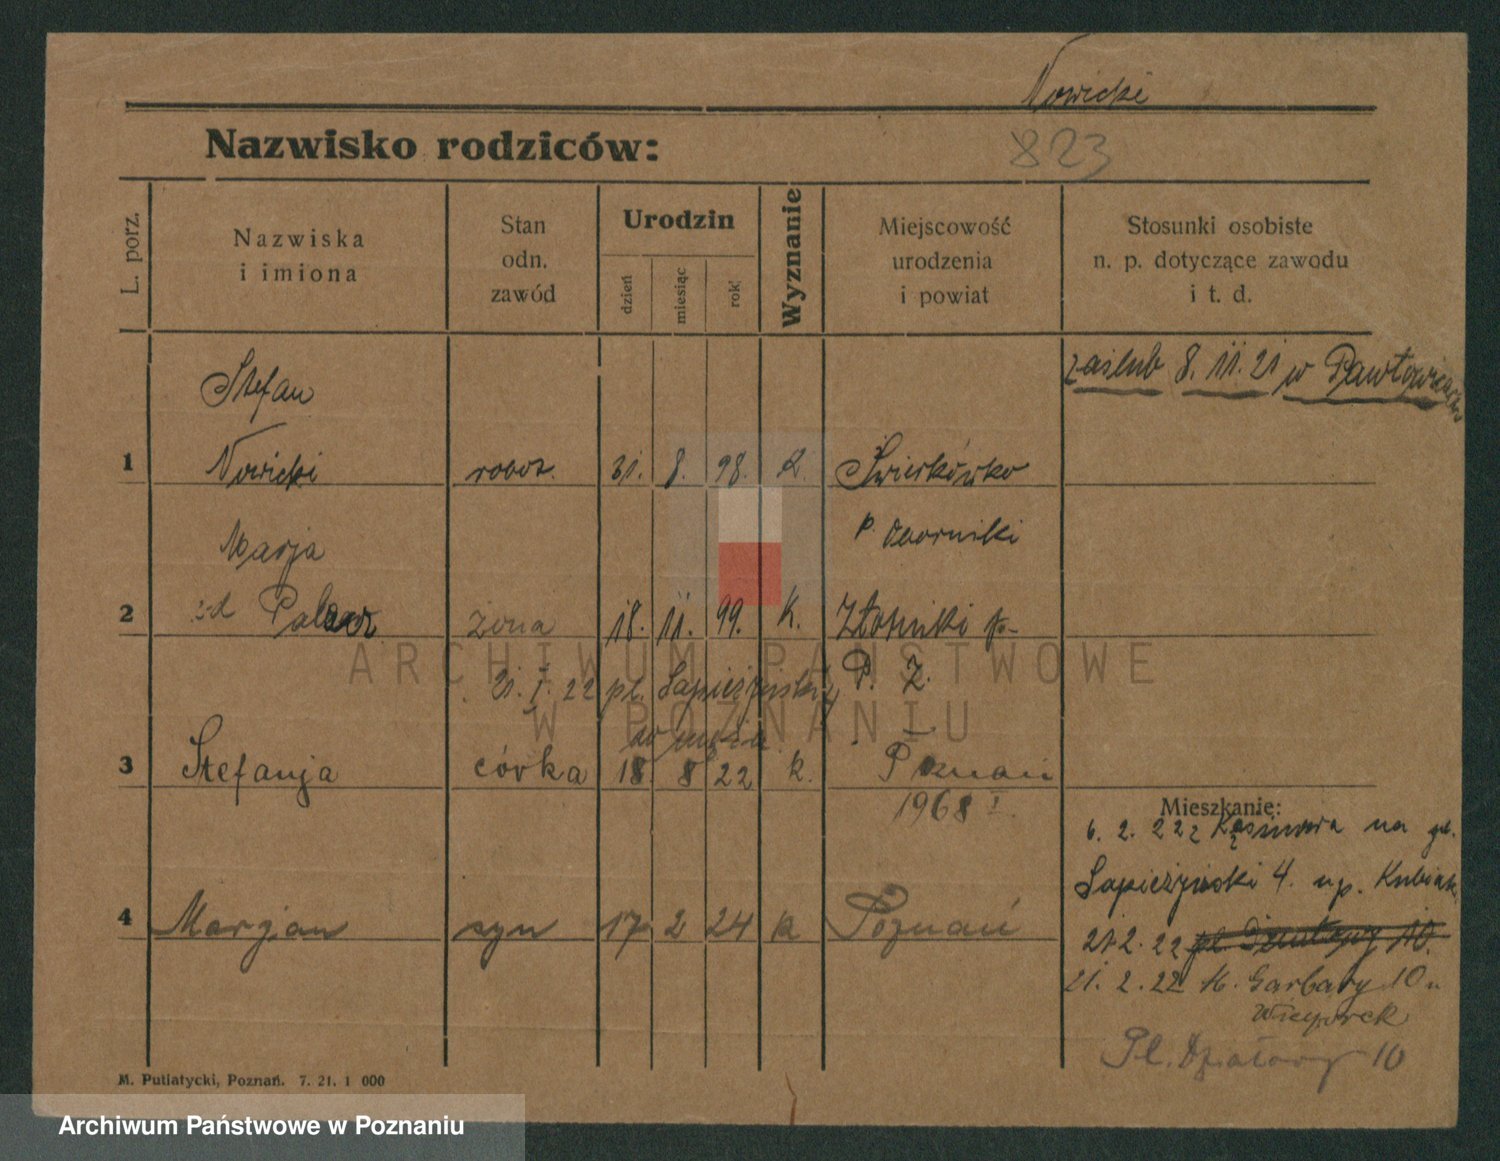 Nowicki
Nazwisko rodziców:
823
L. porz.
Nazwiska
i imiona
Stan
odn.
zawód
Urodzin
dzień
miesiąc
rok
Wyznanie
Miejscowość
urodzenia
i powiat
Stosunki osobiste
n. p. dotyczące zawodu
i t. d.
zaślub 8. 11. 21 w
Stefan
1 Nowicki robot. 31. 8. 98. k. Świerkówko
Marja p. Oborniki
2 żona 18. 11. 99. k. Złotniki p.
21. I. 22 pl. Sapieżyński P. Z.
do męża
3 Stefanja córka 18 8 22 k. Poznań
1968 I.
Mieszkanie:
6. 2. 22 z Kaźmierza na pl.
Sapieżyński 4. up.
4 Marjan syn 17 2 24 k Poznań
21. 2. 22 pl. Działowy 10.
21. 2. 22 W. Garbary 10 u
Wieczorek
Pl. Działowy 10
M. Putiatycki, Poznań. 7. 21. 1 000
ARCHIWUM PAŃSTWOWE
W POZNANIU
Archiwum Państwowe w Poznaniu